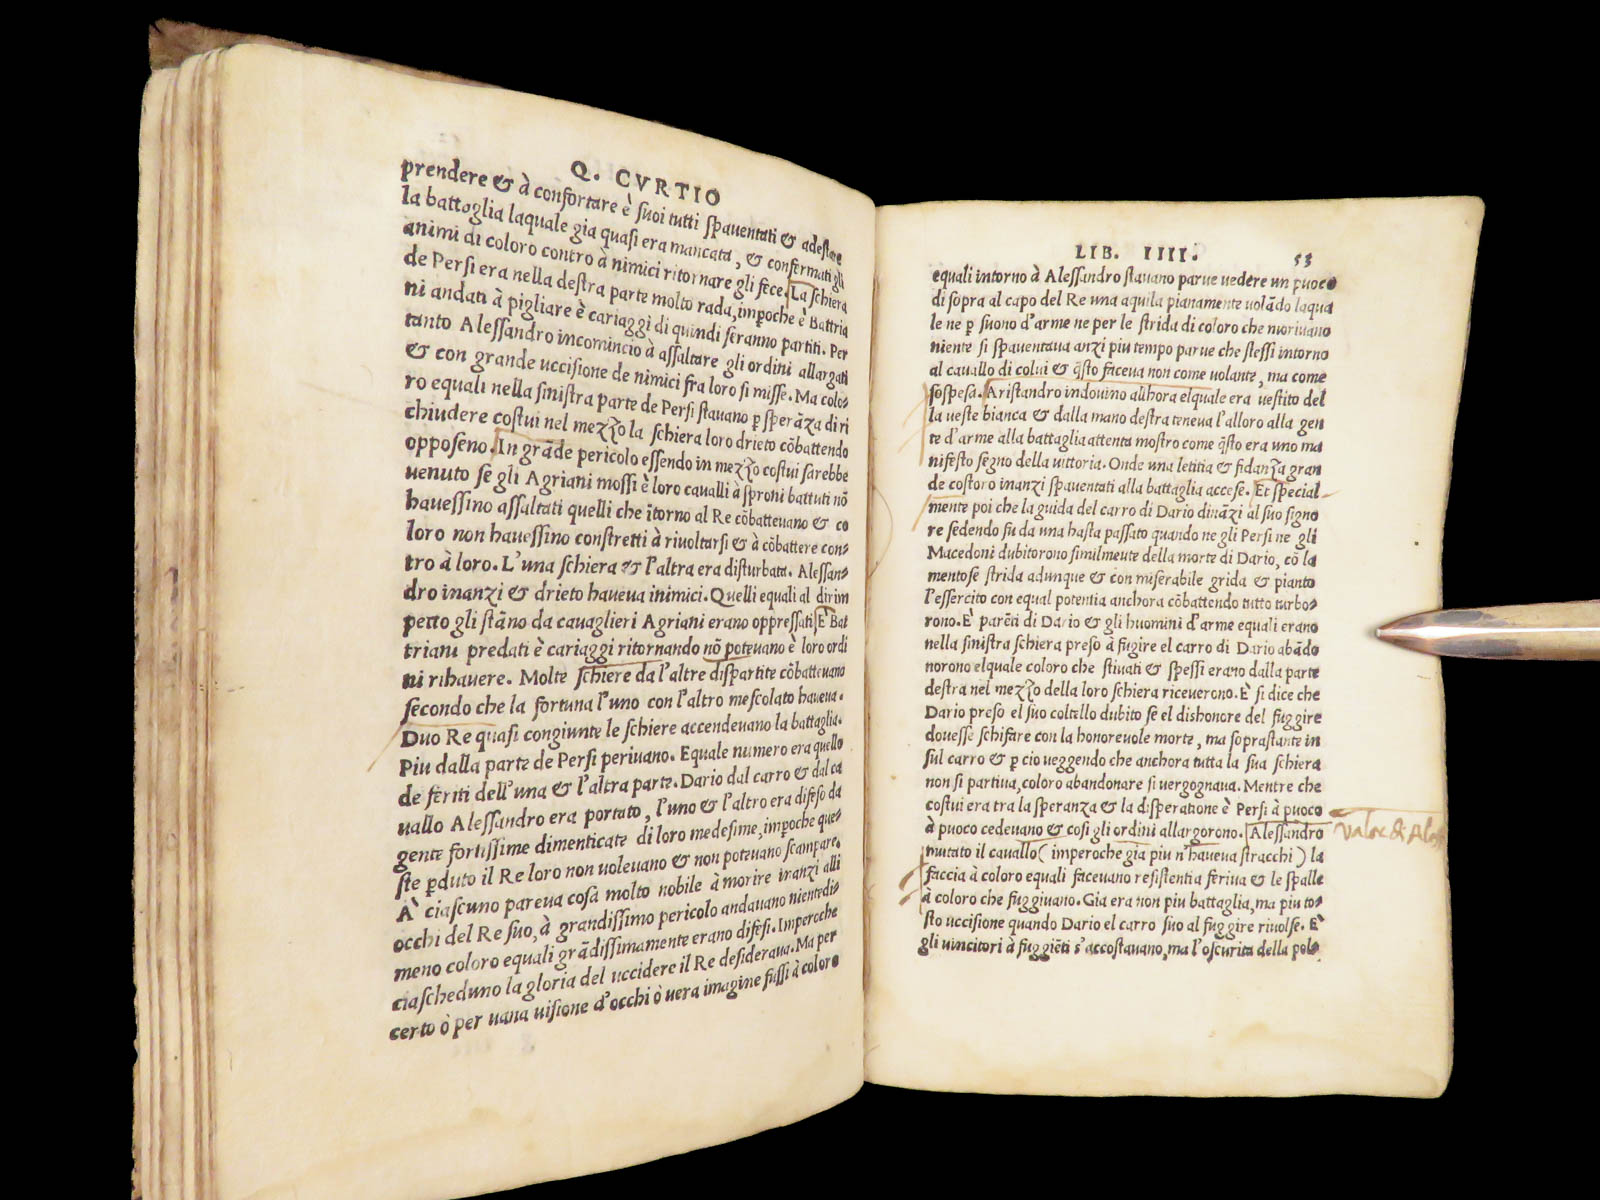 Q. CVRTIO
prendere & à confortare è suoi tutti spauentati & adestare
la battaglia laquale gia quasi era mancata, & confermati gli
animi di coloro contro à nimici ritornare gli fece. La schiera
de Persi era nella destra parte molto rada, imp̱oche è Battria
ni andati à pigliare è cariaggi di quindi seranno partiti. Per
tanto Alessandro incomincio à assaltare gli ordini allargati
& con grande uccisione de nimici fra loro si misse. Ma colo-
ro equali nella sinistra parte de Persi stauano p̱ sperāza di ri
chiudere costui nel mezzo la schiera loro drieto cōbattendo
opposeno. In grāde pericolo essendo in mezzo costui sarebbe
uenuto se gli Agriani mossi è loro caualli à sproni battuti nō
hauessino assaltati quelli che ītorno al Re cōbatteuano & co
loro non hauessino constretti à riuoltarsi & à cōbattere con-
tro à loro. L'una schiera & l'altra era disturbata. Alessan-
dro inanzi & drieto haueua inimici. Quelli equali al dirim
petto gli stāno da cauaglieri Agriani erano oppressati È Bat
triani predati è cariaggi ritornando nō poteuano è loro ordi
ni rihauere. Molte schiere da l'altre dispartite cōbatteuano
secondo che la fortuna l'uno con l'altro mescolato haueua.
Duo Re quasi congiunte le schiere accendeuano la battaglia.
Piu dalla parte de Persi periuano. Equale numero era quello
de feriti dell'una & l'altra parte. Dario dal carro & dal ca
uallo Alessandro era portato, l'uno & l'altro era difeso da
gente fortissime dimenticate di loro medesime, imp̱oche que-
ste p̱duto il Re loro non uoleuano & non poteuano scampare.
À ciascuno pareua cosa molto nobile à morire inanzi alli
occhi del Re suo, à grandissimo pericolo andauano nientedi-
meno coloro equali grādissimamente erano difesi. Imperoche
ciascheduno la gloria del uccidere il Re desideraua. Ma per
certo ò per uana uisione d'occhi ò uera imagine fussi à coloro
LIB. IIII. 53
equali intorno à Alessandro stauano parue uedere un puoco
di sopra al capo del Re una aquila pianamente uolādo laqua
le ne p̱ suono d'arme ne per le strida di coloro che moriuano
niente si spauentaua anzi piu tempo parue che stessi intorno
al cauallo di colui & q̄sto faceua non come uolante, ma come
sospesa. Aristandro indouino allhora elquale era uestito del
la ueste bianca & dalla mano destra teneua l'alloro alla gen
te d'arme alla battaglia attenta mostro come q̄sto era uno ma
nifesto segno della uittoria. Onde una letitia & fidanza gran
de costoro inanzi spauentati alla battaglia accese. Et special-
mente poi che la guida del carro di Dario dināzi al suo signo
re sedendo fu da una hasta passato quando ne gli Persi ne gli
Macedoni dubitorono similmeute della morte di Dario, cō la
mentose strida adunque & con miserabile grida & pianto
l'essercito con equal potentia anchora cōbattendo tutto turbo-
rono. È parēti di Dario & gli huomini d'arme equali erano
nella sinistra schiera preso à fugire el carro di Dario abādo
norono elquale coloro che stiuati & spessi erano dalla parte
destra nel mezzo della loro schiera riceuerono. È si dice che
Dario preso el suo coltello dubito se el dishonore del fuggire
douesse schifare con la honoreuole morte, ma soprastante in
sul carro & p̱ cio ueggendo che anchora tutta la sua schiera
non si partiua, coloro abandonare si uergognaua. Mentre che
costui era tra la speranza & la disperatione è Persi à puoco
à puoco cedeuano & cosi gli ordini allargorono. Alessandro
mutato il cauallo (imperoche gia piu n'haueua stracchi) la
faccia à coloro equali faceuano resistentia feriua & le spalle
à coloro che fuggiuano. Gia era non piu battaglia, ma piu to-
sto uccisione quando Dario el carro suo al fuggire riuolse. È
gli uincitori à fuggiēti s'accostauano, ma l'oscurita della pol-
Valor di Aless